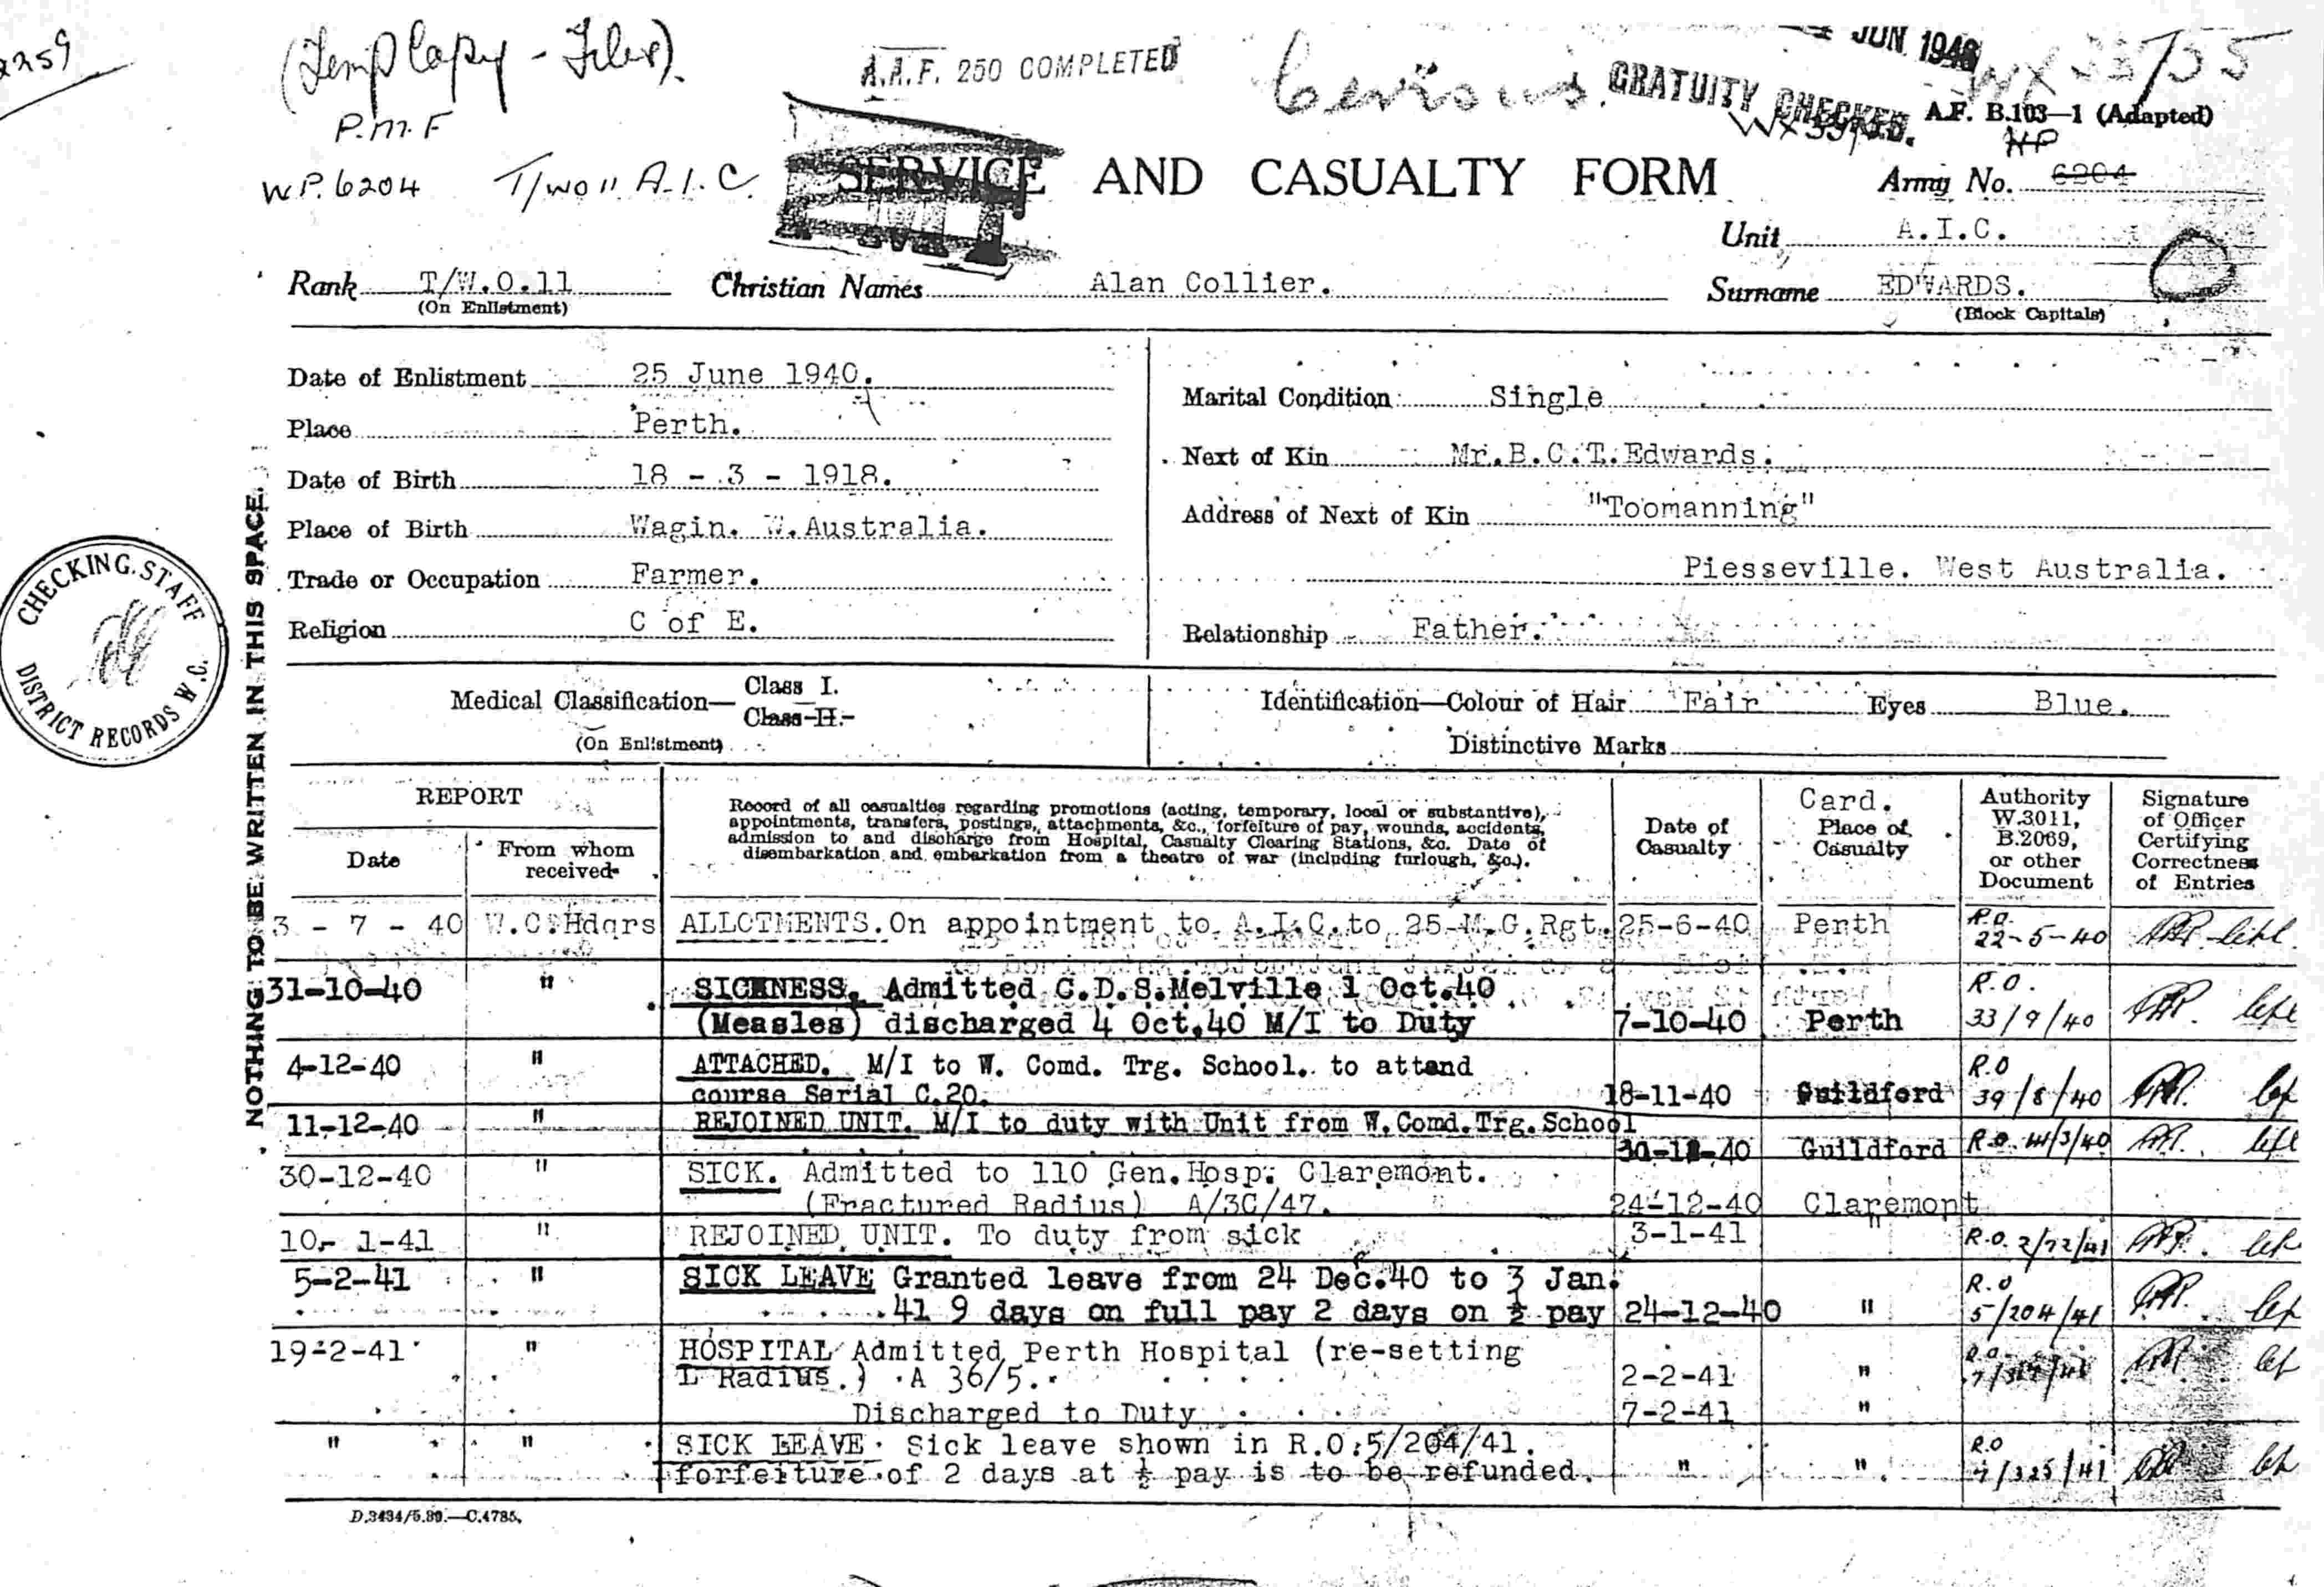 2259
(Temp Copy - Files).
P.M.F
WP.6204 T/WO11 A.I.C.
A.A.F. 250 COMPLETED
JUN 1946
GRATUITY CHECKED.
A.F. B.103—1 (Adapted)
WP
SERVICE AND CASUALTY FORM
Army No. 6204
Unit A.I.C.
Rank T/W.O.11 Christian Names Alan Collier. Surname EDWARDS.
(On Enlistment) (Block Capitals)
Date of Enlistment 25 June 1940.
Place Perth.
Date of Birth 18 - 3 - 1918.
Place of Birth Wagin. W.Australia.
Trade or Occupation Farmer.
Religion C of E.
Marital Condition Single
Next of Kin Mr.B.C.T.Edwards.
Address of Next of Kin "Toomanning"
Piesseville. West Australia.
Relationship Father.
CHECKING STAFF
DISTRICT RECORDS W.C.
NOTHING TO BE WRITTEN IN THIS SPACE.
Medical Classification— Class I.
Class II.
(On Enlistment)
Identification—Colour of Hair Fair Eyes Blue.
Distinctive Marks
REPORT
Date
From whom received
Record of all casualties regarding promotions (acting, temporary, local or substantive),
appointments, transfers, postings, attachments, &c., forfeiture of pay, wounds, accidents,
admission to and discharge from Hospital, Casualty Clearing Stations, &c. Date of
disembarkation and embarkation from a theatre of war (including furlough, &c.).
Date of Casualty
Card.
Place of Casualty
Authority W.3011, B.2069, or other Document
Signature of Officer Certifying Correctness of Entries
3 - 7 - 40 W.C.Hdqrs ALLOTMENTS. On appointment to A.I.C. to 25 M.G.Rgt. 25-6-40 Perth R.O. 22-5-40
31-10-40 " SICKNESS. Admitted C.D.S.Melville 1 Oct.40 R.O.
(Measles) discharged 4 Oct.40 M/I to Duty 7-10-40 Perth 33/9/40
4-12-40 " ATTACHED. M/I to W. Comd. Trg. School. to attend R.O
course Serial C.20. 18-11-40 Guildford 39/8/40
11-12-40 " REJOINED UNIT. M/I to duty with Unit from W.Comd.Trg.School
-40 Guildford R.O.
30-12-40 " SICK. Admitted to 110 Gen.Hosp. Claremont.
(Fractured Radius) A/3C/47. 24-12-40 Claremont
10- 1-41 " REJOINED UNIT. To duty from sick 3-1-41 " R.O. 2/72/41
5-2-41 " SICK LEAVE Granted leave from 24 Dec.40 to 3 Jan. R.O
41 9 days on full pay 2 days on ½ pay 24-12-40 " 5/204/41
19-2-41 " HOSPITAL Admitted Perth Hospital (re-setting R.O
L Radius.) A 36/5. 2-2-41 "
Discharged to Duty 7-2-41 "
" " SICK LEAVE Sick leave shown in R.O.5/204/41. R.O
forfeiture of 2 days at ½ pay is to be refunded. " " 7/325/41
D.3434/5.39.—C.4785.